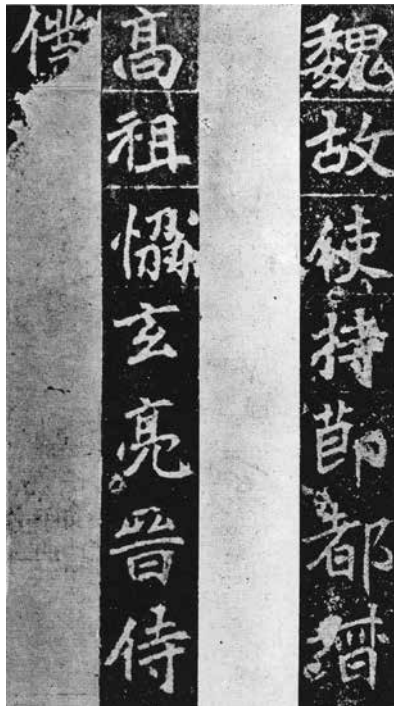 魏故使持節都督
高祖恊玄亮晉侍
僕